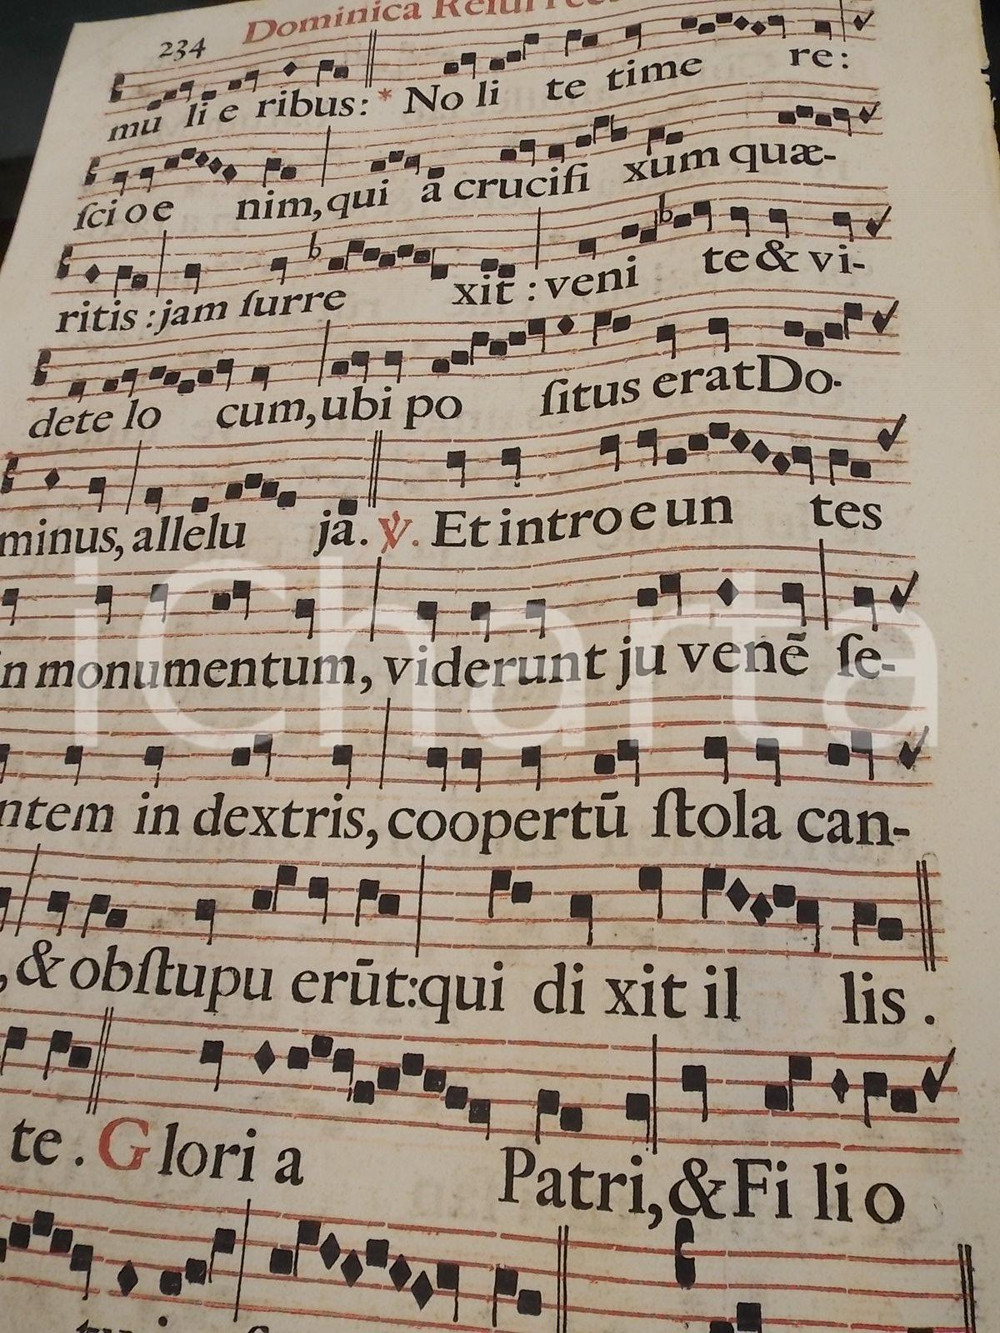 234 Dominica Resurrec
mu li e ribus: * No li te time re:
ſci o e nim, qui a crucifi xum quæ-
ritis : jam ſurre xit : veni te & vi-
dete lo cum, ubi po ſitus erat Do-
minus, allelu ja. ℣. Et intro e un tes
in monumentum, viderunt ju venẽ ſe-
ntem in dextris, coopertū ſtola can-
, & obſtupu erūt: qui di xit il lis .
te . Glori a Patri, & Fi li o
iCharta